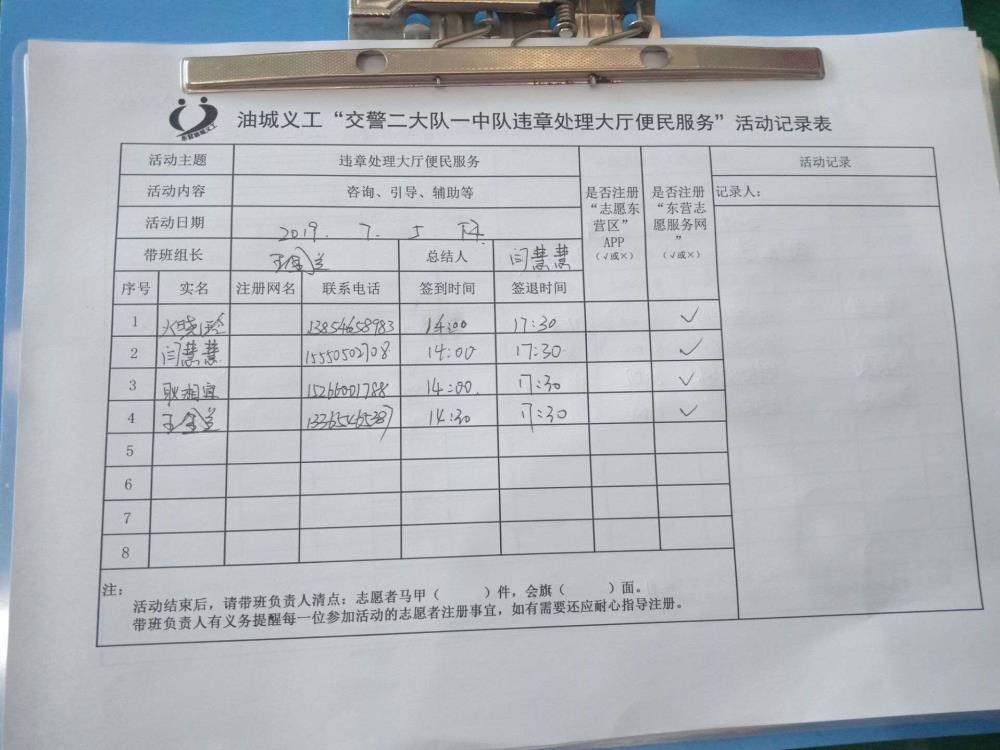 油城义工“交警二大队一中队违章处理大厅便民服务”活动记录表
东营油城义工
活动主题 违章处理大厅便民服务 是否注册“志愿东营区”APP（√或×） 是否注册“东营志愿服务网”（√或×） 活动记录
活动内容 咨询、引导、辅助等 记录人：
活动日期 2019. 7. 5 下午
带班组长 总结人 闫慧慧
序号 实名 注册网名 联系电话 签到时间 签退时间
1 13854658983 14:00 17:30 ✓
2 闫慧慧 15550502708 14:00 17:30 ✓
3 耿相宜 15266001788 14:00 17:30 ✓
4 13365465387 14:30 17:30 ✓
5
6
7
8
注：
活动结束后，请带班负责人清点：志愿者马甲（ ）件，会旗（ ）面。
带班负责人有义务提醒每一位参加活动的志愿者注册事宜，如有需要还应耐心指导注册。